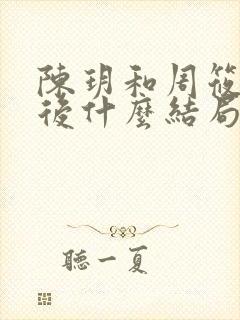 陳玥和周筱
後什麼結局
聽一夏